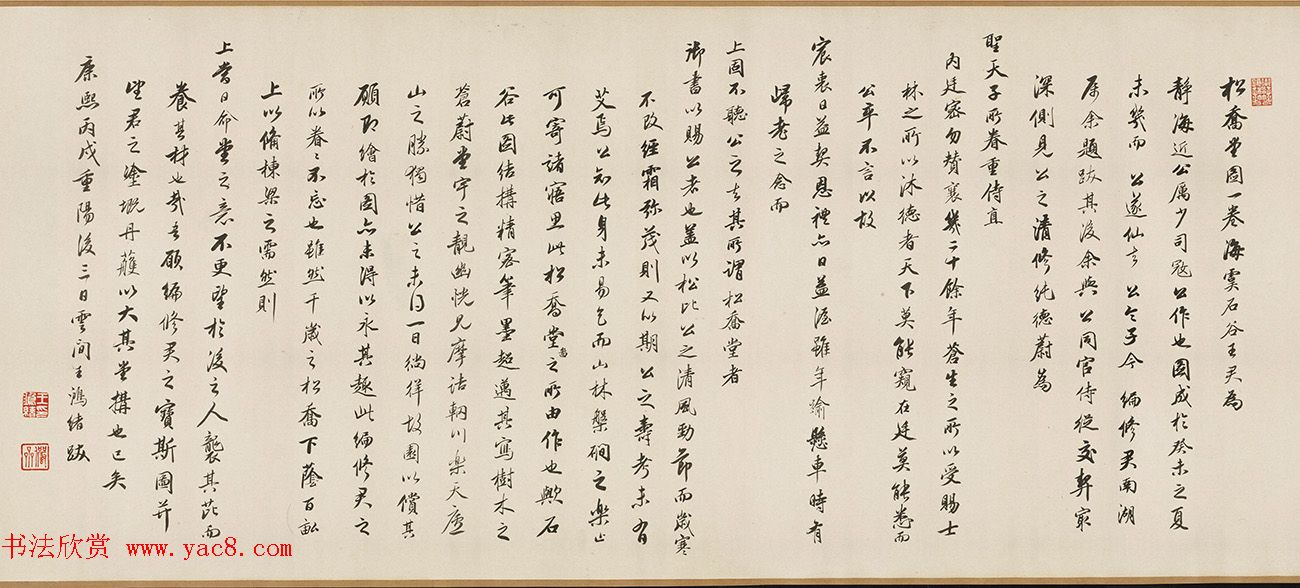 松喬堂圖一卷海虞石谷王君為
靜海近公厲少司寇公作也圖成於癸未之夏
未幾而公遂仙去公令子今編修君南湖
屬余題跋其後余與公同官侍從交契最
深側見公之清修純德蔚為
聖天子所眷重侍直
內廷密勿贊襄幾二十餘年蒼生之所以受賜士
林之所以沐德者天下莫能窺在廷莫能悉而
公卒不言以故
宸衷日益契恩禮亦日益渥雖年踰懸車時有
歸老之念而
上固不聽公之去其所謂松喬堂者
御書以賜公者也蓋以松比公之清風勁節而歲寒
不改經霜彌茂則又以期公之壽考未有
艾焉公知此身未易乞而山林槃磵之樂止
可寄諸寤思此松喬堂圖之所由作也歟石
谷此圖結構精密筆墨超邁其寫樹木之
蒼蔚堂宇之靚幽恍見摩詰輞川樂天廬
山之勝獨惜公之未得一日徜徉故園以償其
願即繪於圖亦未得以永其趣此編修君之
所以眷眷不忘也雖然千歲之松喬下蔭百畝
上以備棟梁之需然則
上當日命堂之意不更望於後之人襲其芘而
養其材也哉吾願編修君之寶斯圖并
望君之塗墍丹雘以大其堂構也已矣
康熙丙戌重陽後三日雲間王鴻緒跋
书法欣赏 www.yac8.com